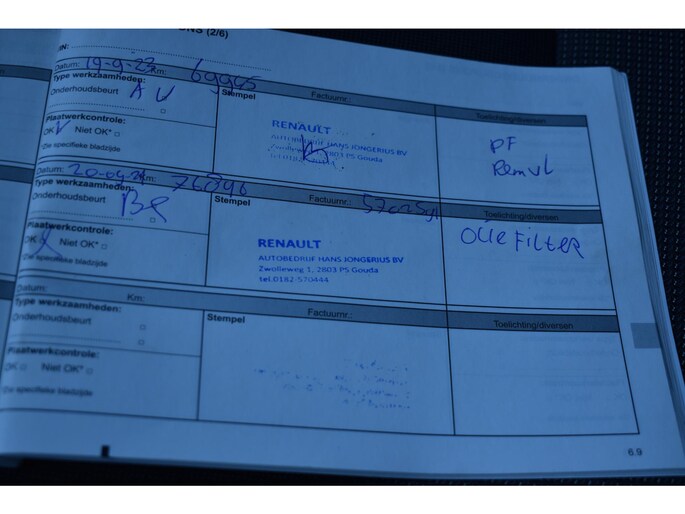 NS (2/6)
IN:
Datum: 19-9-23 Km: 69945
Type werkzaamheden:
Onderhoudsbeurt A
Stempel Factuurnr.:
Toelichting/diversen
Plaatwerkcontrole:
OK Niet OK*
Zie specifieke bladzijde
RENAULT
AUTOBEDRIJF HANS JONGERIUS BV
Zwolleweg 1, 2803 PS Gouda
PF
Remvl
Datum: Km: 76896
Type werkzaamheden:
Onderhoudsbeurt
Stempel Factuurnr.:
Toelichting/diversen
Plaatwerkcontrole:
OK Niet OK*
Zie specifieke bladzijde
RENAULT
AUTOBEDRIJF HANS JONGERIUS BV
Zwolleweg 1, 2803 PS Gouda
tel.0182-570444
OLIE FILTER
Datum: Km:
Type werkzaamheden:
Onderhoudsbeurt
Stempel Factuurnr.:
Toelichting/diversen
Plaatwerkcontrole:
OK Niet OK*
Zie specifieke bladzijde
6.9